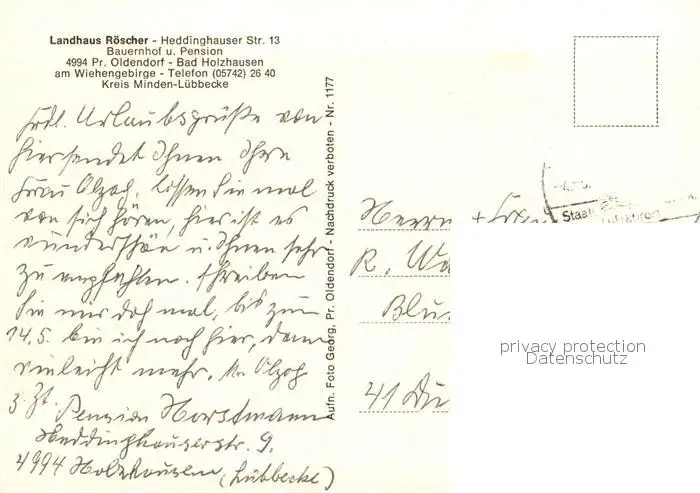 Landhaus Röscher - Heddinghauser Str. 13
Bauernhof u. Pension
4994 Pr. Oldendorf - Bad Holzhausen
am Wiehengebirge - Telefon (05742) 26 40
Kreis Minden-Lübbecke
Frdl. Urlaubsgrüße von
hier sendet Ihnen Ihre
Frau Olzog, lassen Sie mal
von sich hören, hier ist es
wunderschön u. Ihnen sehr
zu empfehlen. schreiben
Sie mir doch mal, bis zum
14.5. bin ich noch hier, dann
vielleicht mehr. Olzog
z. Zt. Pension Horstmann
Heddinghauserstr. 9.
4994 Holzhausen (Lübbecke)
Aufn. Foto Georg, Pr. Oldendorf - Nachdruck verboten - Nr. 1177
Staatl.
Herrn + Frau
R. Wa
41 Du
privacy protection
Datenschutz